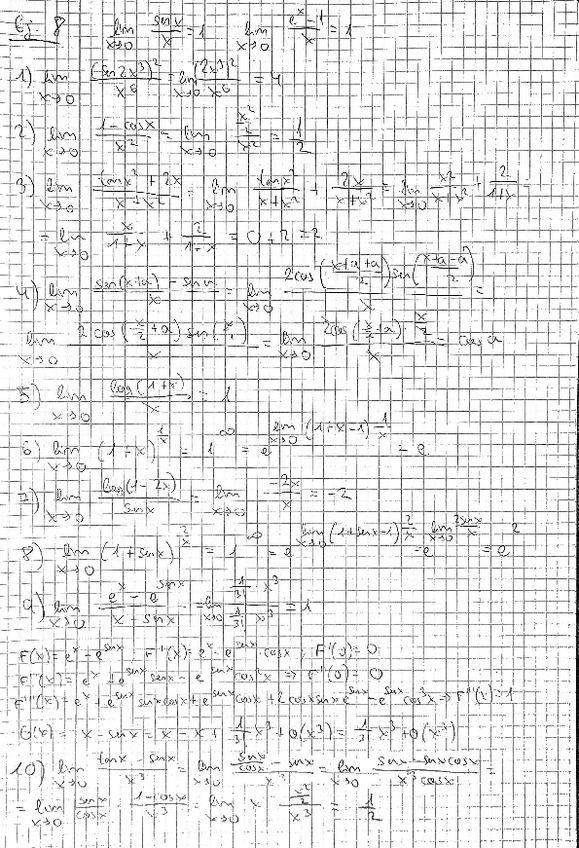 Ej. 8 lim x→0 sen x / x = 1 lim x→0 (e^x - 1)/x = 1
1) lim x→0 (sen 2x³)²/x⁶ = lim x→0 (2x³)²/x⁶ = 4
2) lim x→0 (1 - cosx)/x² = lim x→0 (x²/2)/x² = 1/2
3) lim x→0 (tanx² + 2x)/(x + x²) = lim x→0 tanx²/(x+x²) + 2x/(x+x²) = lim x→0 x²/(x+x²) + 2/(1+x) =
= lim x→0 x/(1+x) + 2/(1+x) = 0 + 2 = 2
4) lim x→0 (sen(x+a) - sen a)/x = lim x→0 2cos((x+a+a)/2) sen((x+a-a)/2)/x =
lim x→0 2 cos(x/2 + a) sen(x/2)/x = lim x→0 2cos(x/2 + a) · x/2 / x = cos a
5) lim x→0 log(1+x)/x = 1
6) lim x→0 (1+x)^(1/x) = 1^∞ = e^(lim x→0 (1+x-1) 1/x) = e
7) lim x→0 log(1-2x)/senx = lim x→0 -2x/x = -2
8) lim x→0 (1 + senx)^(2/x) = 1^∞ = e^(lim x→0 (1+senx-1) 2/x) = e^(lim x→0 2senx/x) = e²
9) lim x→0 (e^x - e^senx)/(x - senx) = lim x→0 (1/3! · x³)/(1/3! · x³) = 1
F(x) = e^x - e^senx F'(x) = e^x - e^senx cosx; F'(0) = 0
F''(x) = e^x + e^senx senx - e^senx cos²x ⇒ F''(0) = 0
F'''(x) = e^x + e^senx senx cosx + e^senx cosx + 2cosx senx e^senx - e^senx cos³x ⇒ F'''(x) = 1
G(x) = x - senx = x - x + 1/3! x³ + o(x³) = 1/3! x³ + o(x³)
10) lim x→0 (tanx - senx)/x³ = lim x→0 (senx/cosx - senx)/x³ = lim x→0 (senx - senx cosx)/(x³ cosx) =
= lim x→0 senx/cosx · (1-cosx)/x³ = lim x→0 x · (x²/2)/x³ = 1/2